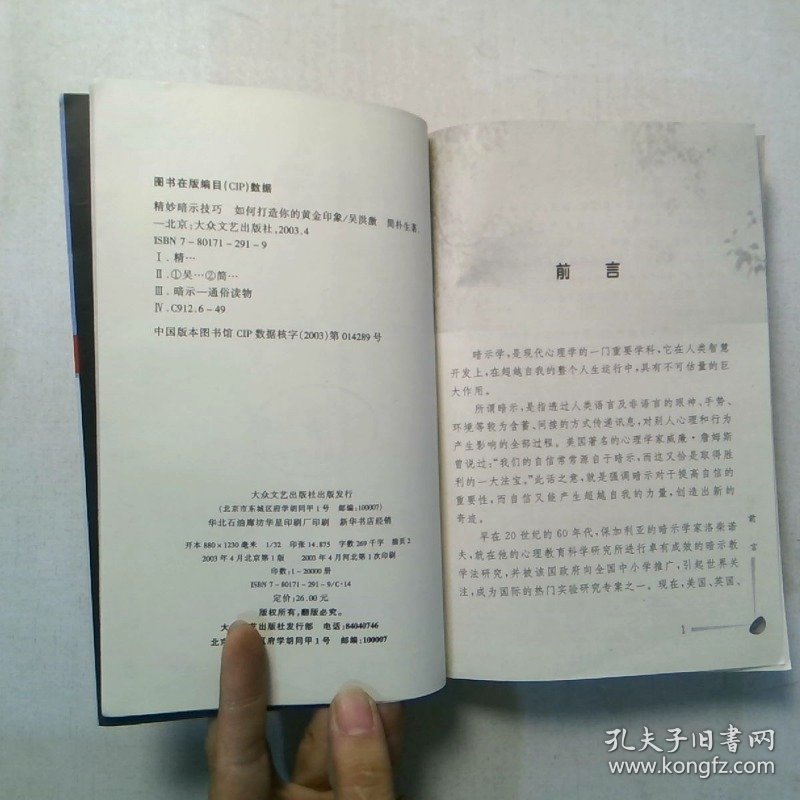 图书在版编目(CIP)数据
精妙暗示技巧 如何打造你的黄金印象/吴洪激 简朴生著.
—北京:大众文艺出版社,2003.4
ISBN 7-80171-291-9
Ⅰ.精…
Ⅱ.①吴…②简…
Ⅲ.暗示—通俗读物
Ⅳ.C912.6-49
中国版本图书馆 CIP 数据核字(2003)第 014289 号
大众文艺出版社出版发行
(北京市东城区府学胡同甲1号 邮编:100007)
华北石油廊坊华星印刷厂印刷 新华书店经销
开本 880×1230 毫米 1/32 印张 14.875 字数 269 千字 插页 2
2003 年 4 月北京第 1 版 2003 年 4 月河北第 1 次印刷
印数:1-20000 册
ISBN 7-80171-291-9/C·14
定价:26.00 元
版权所有,翻版必究。
大 艺出版社发行部 电话:84040746
北京 区府学胡同甲1号 邮编:100007
前 言
暗示学,是现代心理学的一门重要学科,它在人类智慧
开发上,在超越自我的整个人生运行中,具有不可估量的巨
大作用。
所谓暗示,是指透过人类语言及非语言的眼神、手势、
环境等较为含蓄、间接的方式传递讯息,对别人心理和行为
产生影响的全部过程。美国著名的心理学家威廉·詹姆斯
曾说过:“我们的自信常常源自于暗示,而这又恰是取得胜
利的一大法宝。”此话之意,就是强调暗示对于提高自信的
重要性,而自信又能产生超越自我的力量,创造出新的
奇迹。
早在 20 世纪的 60 年代,保加利亚的暗示学家洛柴诺
夫,就在他的心理教育科学研究所进行卓有成效的暗示教
学法研究,并被该国政府向全国中小学推广,引起世界关
注,成为国际的热门实验研究专案之一。现在,美国、英国、
前
言
1
孔夫子旧书网
www.kongfz.com